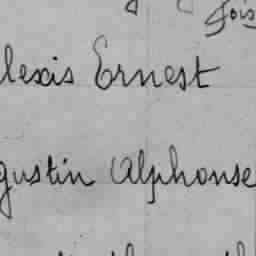 fois
lexis Ernest
gustin Alphonse